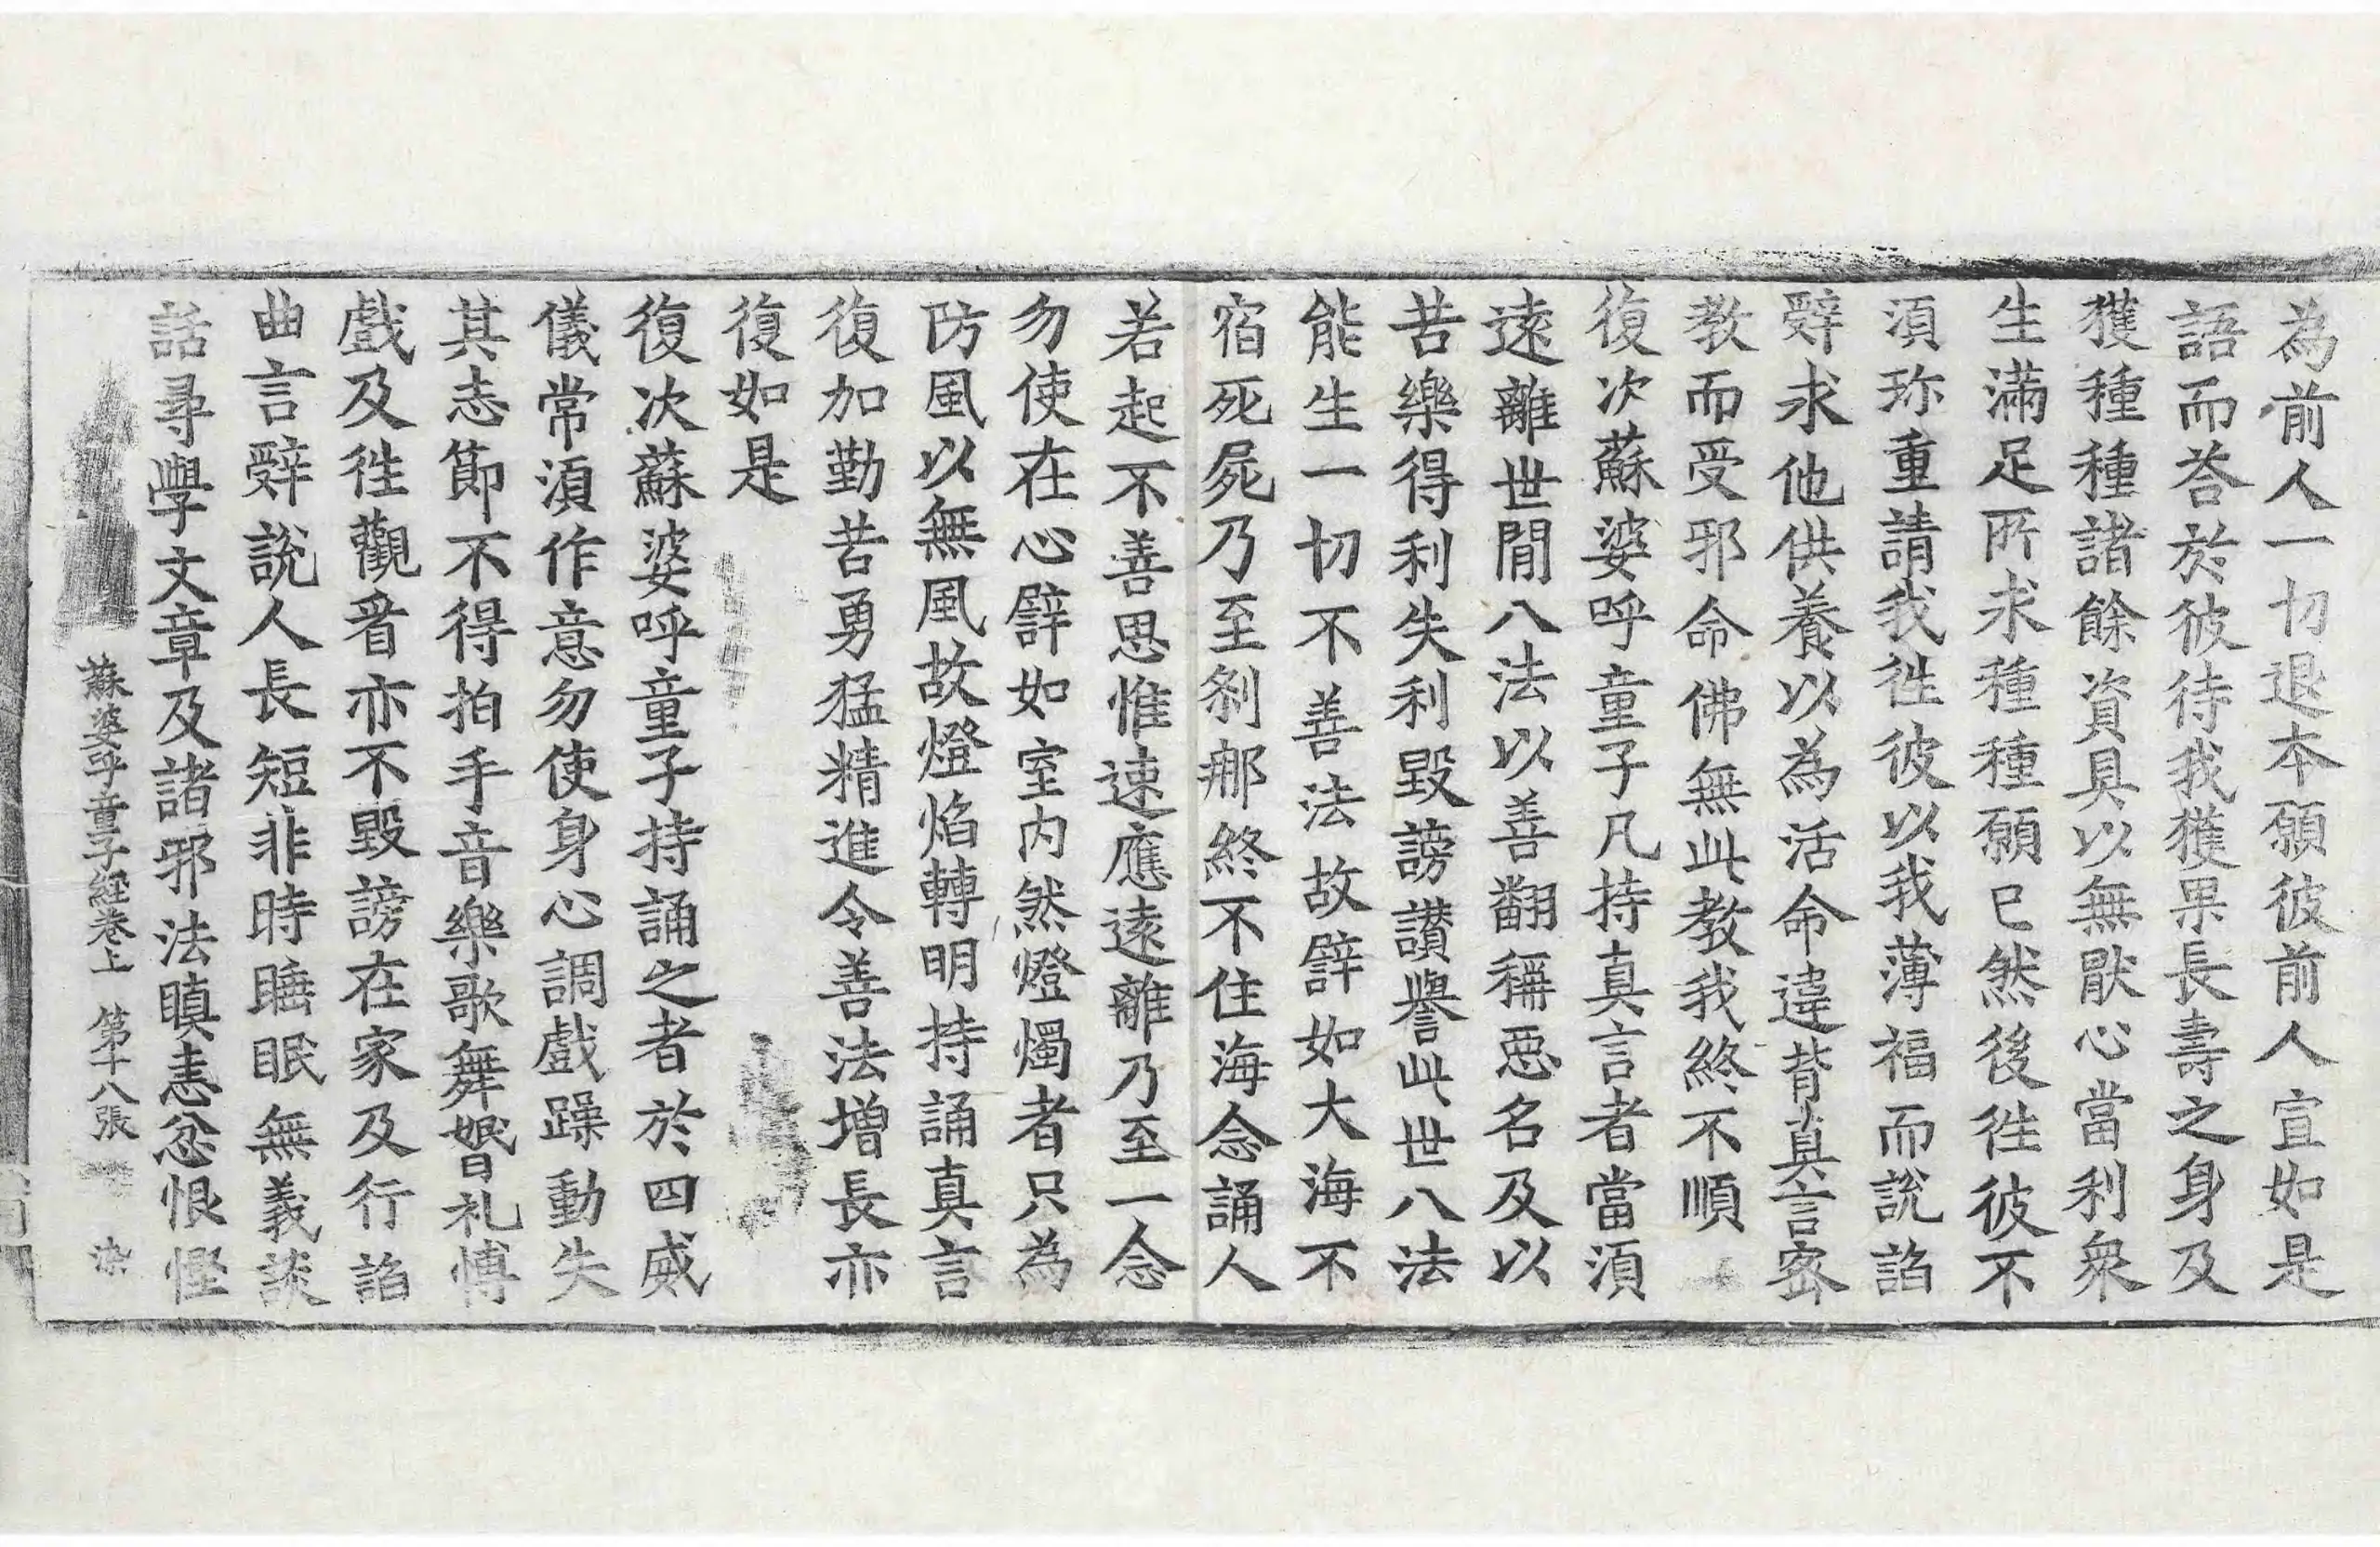 為前人一切退本願彼前人宣如是
語而荅於彼待我獲果長壽之身及
獲種種諸餘資具以無猒心當利衆
生滿足所求種種願已然後徃彼不
湏珎重請我徃彼以我薄福而說諂
辭求他供養以為活命違背真言宻
教而受邪命佛無此教我終不順
復次蘇婆呼童子凡持真言者當湏
遠離世閒八法以善翻稱惡名及以
苦樂得利失利毀謗讃譽此世八法
能生一切不善法故譬如大海不
宿死屍乃至剎那終不住海念誦人
若起不善思惟速應遠離乃至一念
勿使在心譬如室内然燈燭者只為
防風以無風故燈焰轉明持誦真言
復加勤苦勇猛精進令善法增長亦
復如是
復次蘇婆呼童子持誦之者於四威
儀常湏作意勿使身心調戲躁動失
其志節不得拍手音樂歌舞婚礼愽
戲及徃觀看亦不毀謗在家及行諂
曲言辭說人長短非時睡眠無義談
話尋學文章及諸邪法瞋恚忿恨慳
蘇婆呼童子經卷上　第十八張　染